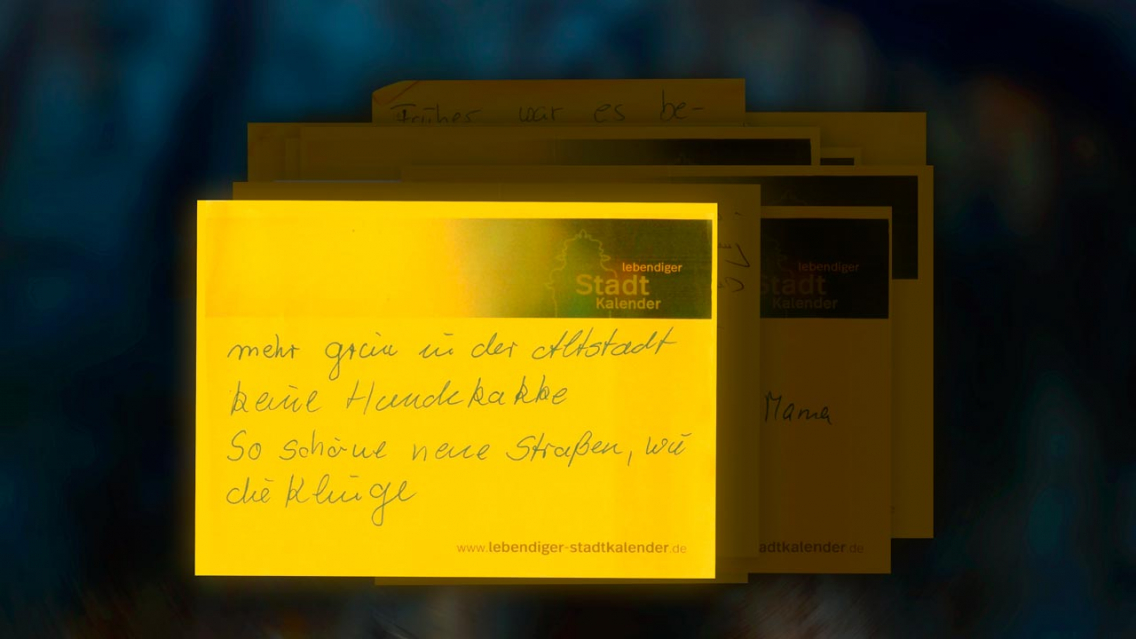 Früher war es be-
lebendiger
Stadt
Kalender
lebendiger
Stadt
Kalender
mehr grün in der Altstadt
keine Hundekakke
So schöne neue Straßen, wie
die Klinge
Mama
www.lebendiger-stadtkalender.de
adtkalender.de